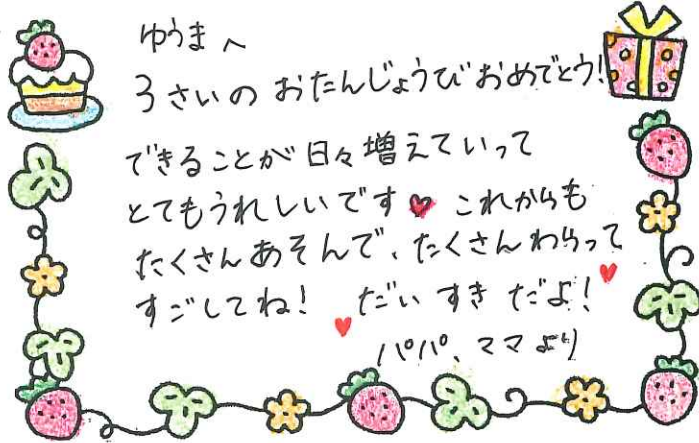 ゆうまへ
3さいの おたんじょうびおめでとう!
できることが日々増えていって
とてもうれしいです♥ これからも
たくさんあそんで、たくさんわらって
すごしてね! だいすきだよ!
パパ、ママより